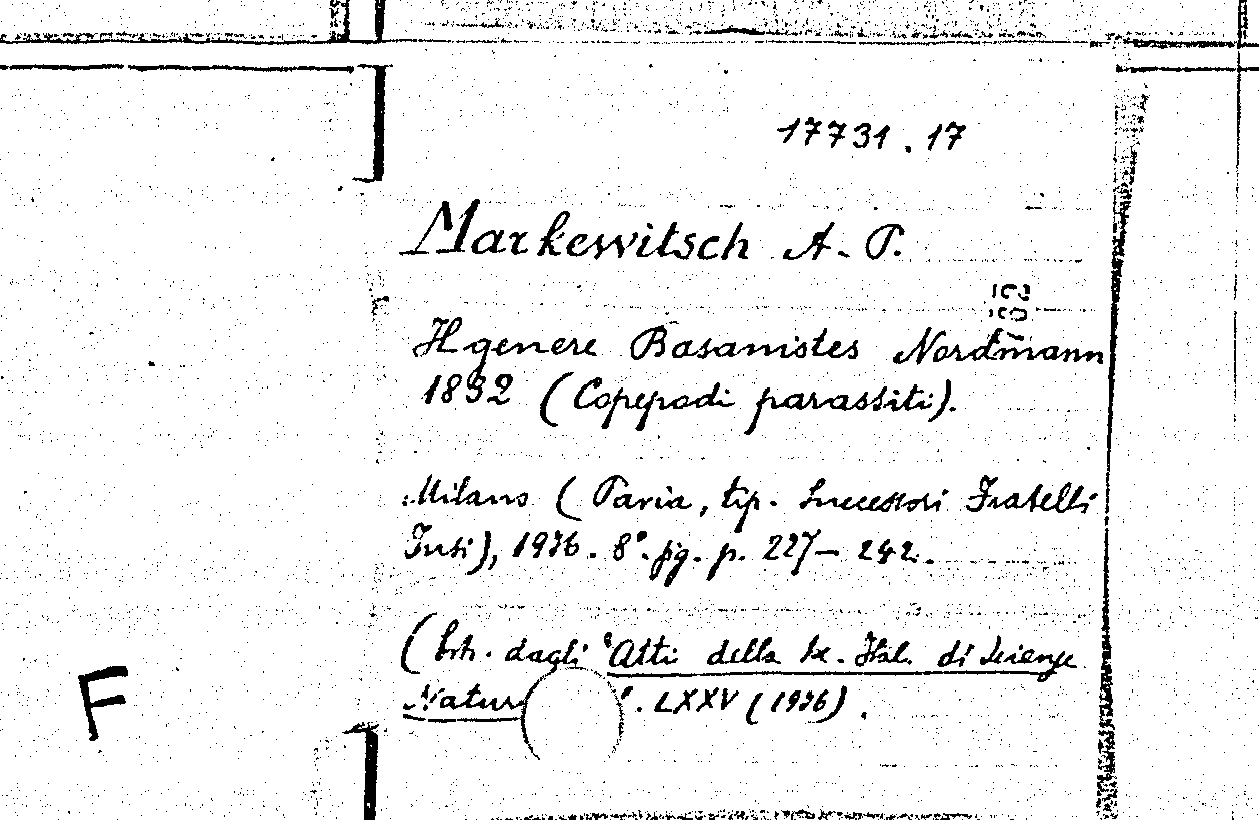 17731.17
Markewitsch A. P.
Il genere Basanistes Nordmann
1832 (Copepodi parassiti).
Milano (Pavia, tip. Successori Fratelli
Fusi), 1936. 8°. fig. p. 227-242.
(Estr. dagli "Atti della Soc. Ital. di Scienze
Natur ". LXXV (1936).
F